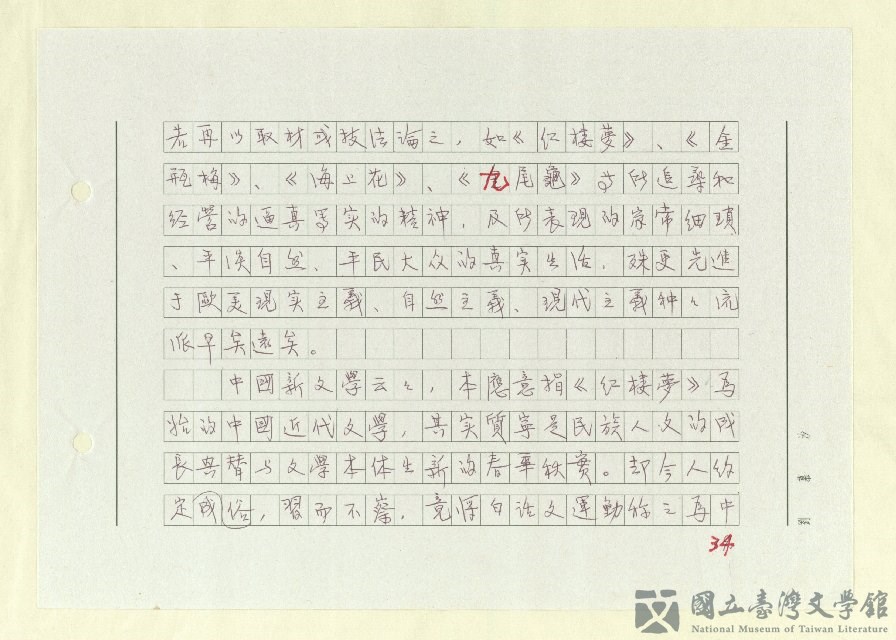 若再以取材或技法論之，如《红楼夢》、《金
瓶梅》、《海上花》、《九尾龜》等所追尋和
经营的逼真写实的精神，及所表现的家常细瑣
、平淡自然、平民大众的真实生活，殊更先進
于歐美現实主義、自然主義、現代主義种々流
派早矣遠矣。
中國新文學云々，本應意指《红楼夢》為
始的中國近代文學，其实質寧是民族人文的成
長興替与文學本体生新的春華秋實。却今人约
定成俗，習而不察，竟将白话文運動称之為中
34
國立臺灣文學館
National Museum of Taiwan Literature